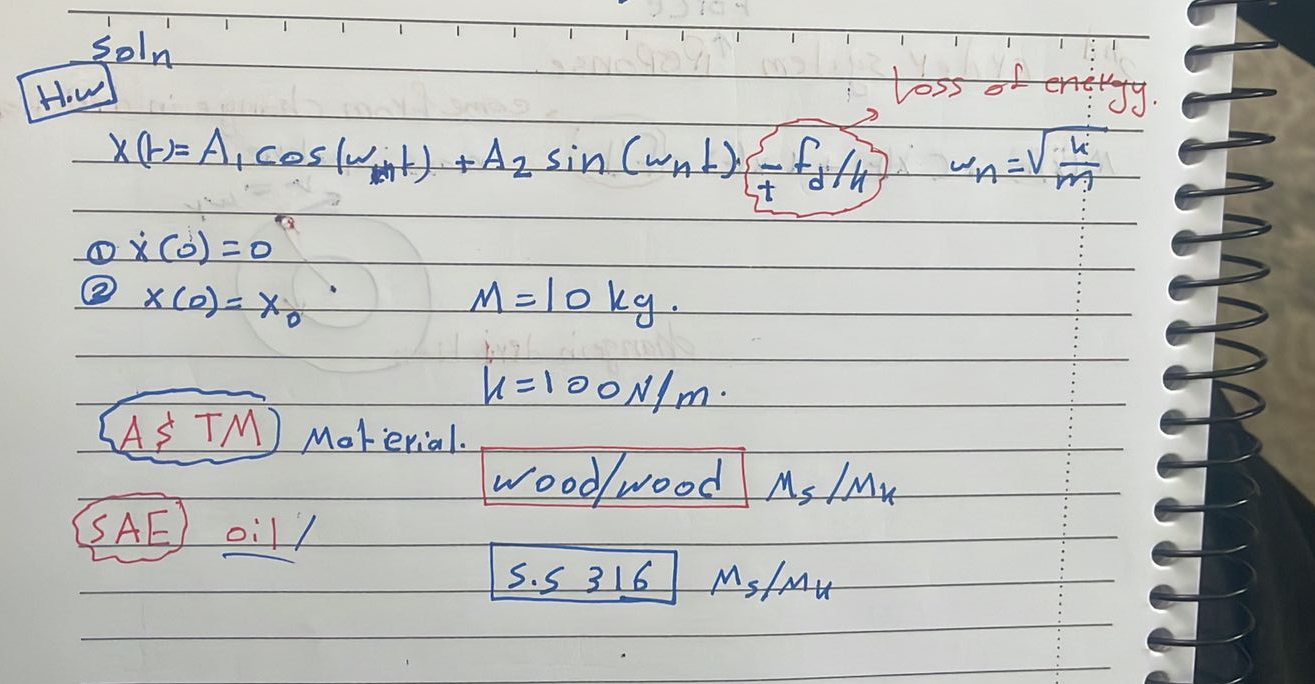 Soln
H.w
Loss of energy.
x(t)= A₁ cos(wₙt) + A₂ sin(wₙt) ∓ f_d/k wₙ=√k/m
① ẋ(0)=0
② x(0)= x₀ M=10 kg.
k=100N/m.
ASTM Material.
wood/wood Ms/Mk
SAE oil/
S.S 316 Ms/Mk